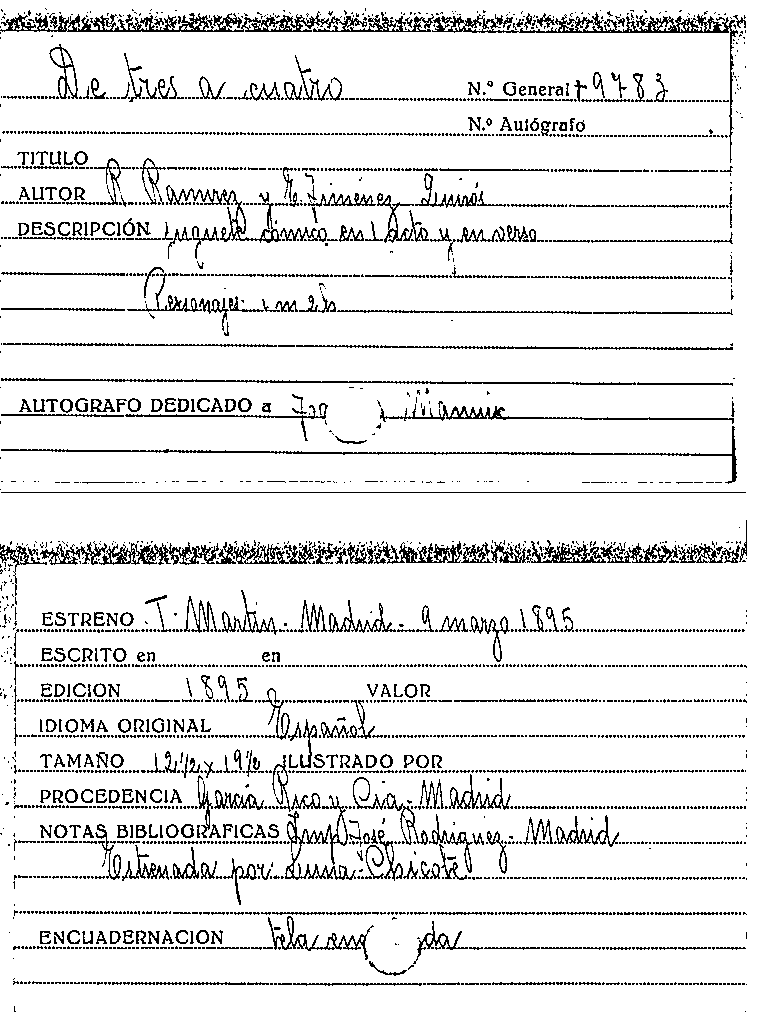 De tres a cuatro
N.º General 9783
N.º Autógrafo
TITULO
AUTOR R Ramirez y E. Jiménez Quirós
DESCRIPCIÓN juguete cómico en 1 acto y en verso
Personajes: 1 m 2 h
AUTOGRAFO DEDICADO a
ESTRENO T. Martin. Madrid. 9 marzo 1895
ESCRITO en en
EDICION 1895 VALOR
IDIOMA ORIGINAL Español
TAMAÑO 12½ x 19½ ILUSTRADO POR
PROCEDENCIA García Rico y Cia. Madrid
NOTAS BIBLIOGRAFICAS Imp José Rodríguez. Madrid
Estrenada por: Luna: Chicote
ENCUADERNACION tela